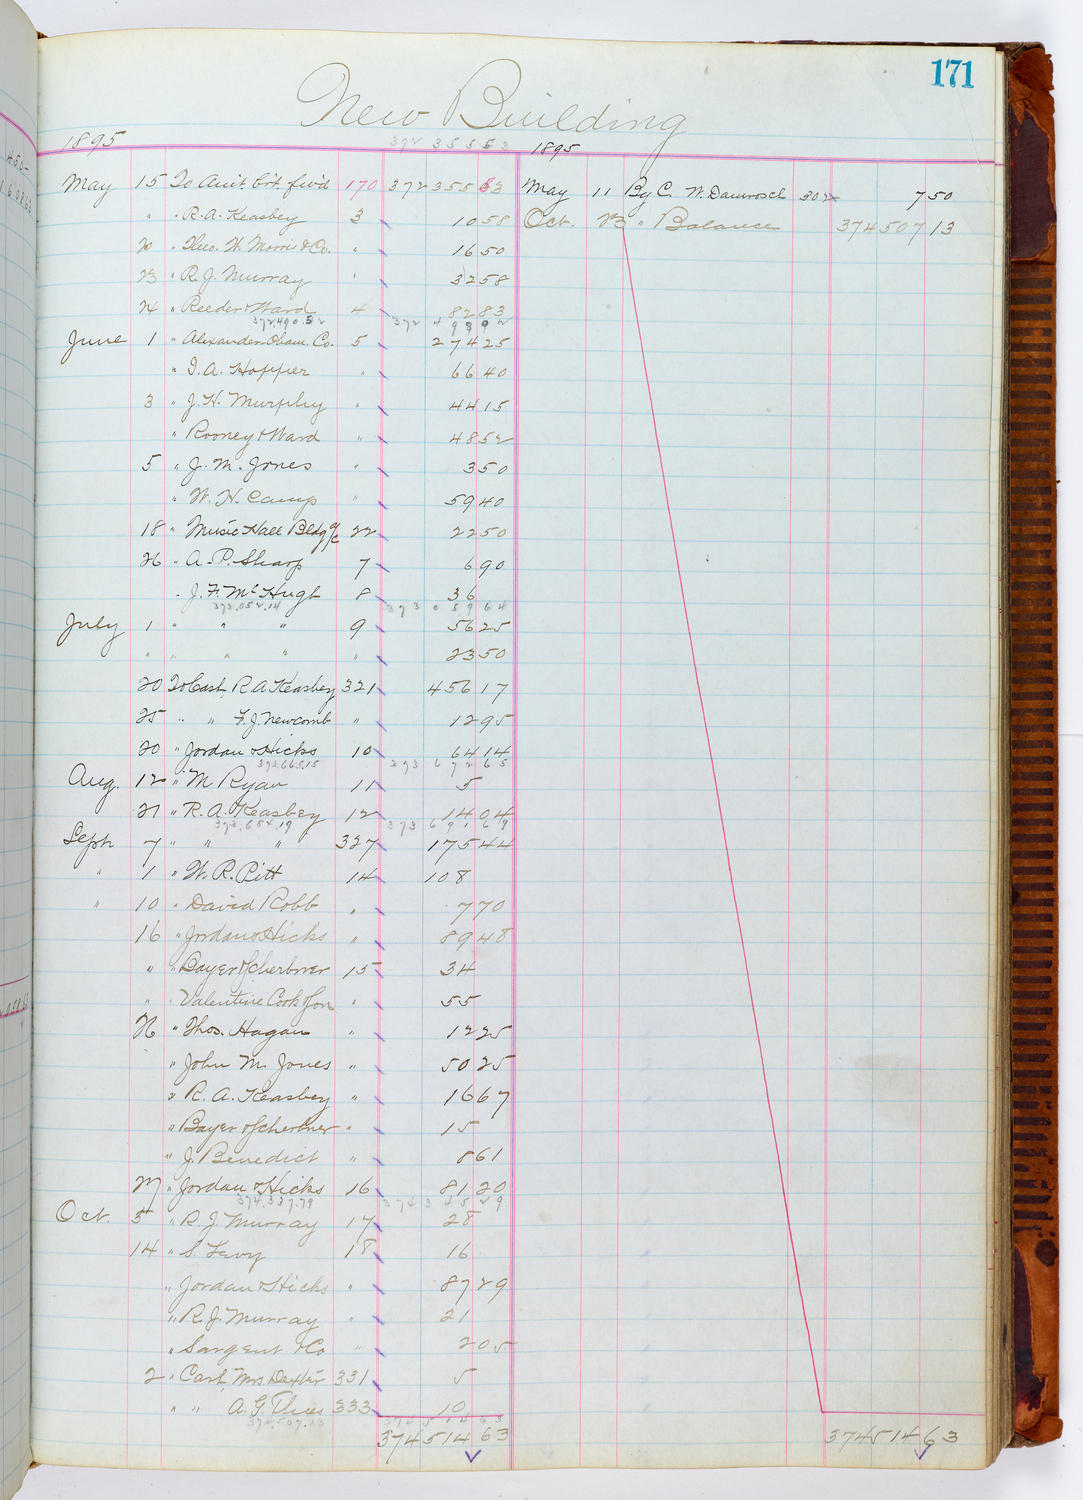 171
New Building
1895 372 355 53 1895
May 15 To Am't bro't. fwd 170 372355 53 May 11 By C. W. Damrosch 302 7 50
" " R. A. Keasbey 3 10 58 Oct. 23 " Balance 374507 13
20 " Theo. W. Morris & Co. " 16 50
23 " R. J. Murray " 32 58
24 " Reeder & Ward 4 82 83
372490.52 372 498 92
June 1 " Alexander Cham. Co. 5 274 25
" I. A. Hopper " 66 40
3 " J. H. Murphy " 44 15
" Rooney & Ward " 48 52
5 " J. M. Jones " 3 50
" W. H. Camp " 59 40
18 " Music Hall Bldg a/c 22 22 50
26 " A. P. Sharp 7 6 90
" J. F. McHugh 8 36
373.052.14 373 059 64
July 1 " " " 9 56 25
" " " " " 23 50
20 To Cash R. A. Keasbey 321 456 17
25 " " F. J. Newcomb " 12 95
20 " Jordan & Hicks 10 64 14
373.665.15 373 672 65
Aug. 12 " M Ryan 11 5
21 " R. A. Keasbey 12 14 04
373,684.19 373 691 69
Sept 7 " " " 327 175 44
" 1 " W. R. Pitt 14 108
" 10 " David Robb " 7 70
16 " Jordan & Hicks " 89 48
" " Bayer & Scherbner 15 34
" " Valentine Cook & Son " 55
26 " Thos. Hagan " 12 25
" John M. Jones " 50 25
" R. A. Keasbey " 16 67
" Bayer & Scherbner " 15
" J. Benedict " 8 61
27 " Jordan & Hicks 16 81 20
374,337.79 374 345 29
Oct. 5 " R. J. Murray 17 28
14 " S. Levy 18 16
" Jordan & Hicks " 87 29
" R. J. Murray " 21
" Sargent & Co " 2 05
2 " Cash Mrs. Dexter 331 5
" " A. G. Thies 333 10
374,507.13 374 514 63
374514 63 374514 63